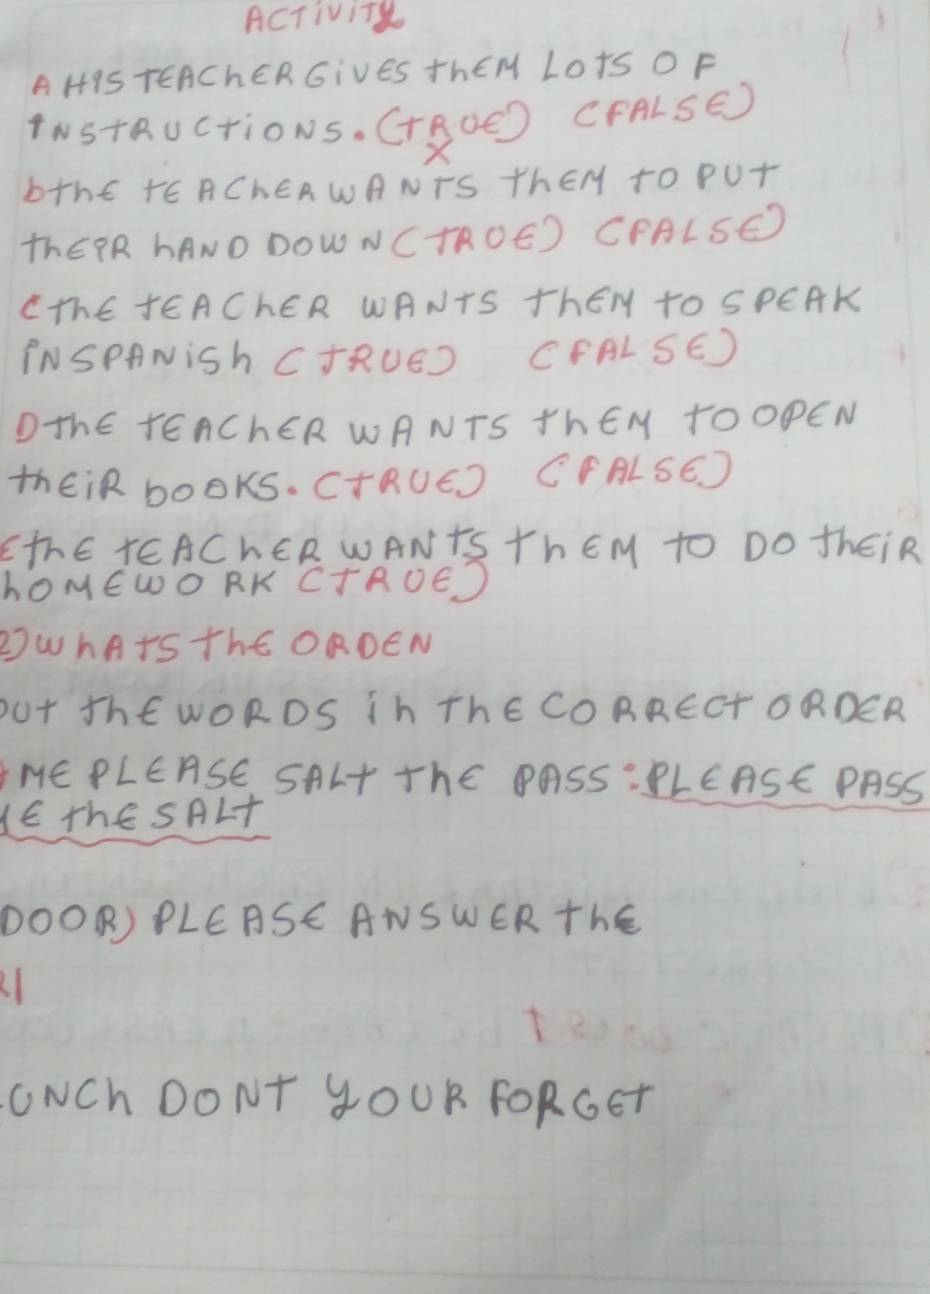 ACTIVITY
A HIS TEACHER GIVES THEM LOTS OF
INSTRUCTIONS. (TRUE) (FALSE)
X
b THE TEACHER WANTS THEM TO PUT
THEIR HAND DOWN (TRUE) (FALSE)
C THE TEACHER WANTS THEM TO SPEAK
IN SPANISH (TRUE) (FALSE)
D THE TEACHER WANTS THEM TO OPEN
THEIR BOOKS. (TRUE) (FALSE)
E THE TEACHER WANTS THEM TO DO THEIR
HOMEWORK (TRUE)
2) WHATS THE ORDEN
PUT THE WORDS IN THE CORRECT ORDER
ME PLEASE SALT THE PASS: PLEASE PASS
ME THE SALT
DOOR) PLEASE ANSWER THE
R)
LUNCH DONT YOUR FORGET